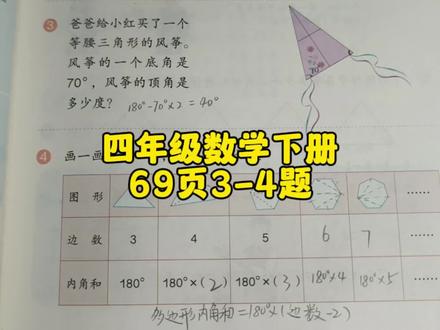 3 爸爸给小红买了一个
等腰三角形的风筝。
风筝的一个底角是
70°，风筝的顶角是
多少度？ 180°-70°×2=40°
4 画一画
四年级数学下册
69页3-4题
图形 ……
边数 3 4 5 6 7 ……
内角和 180° 180°×(2) 180°×(3) 180°×4 180°×5 ……
多边形内角和=180°×(边数-2)